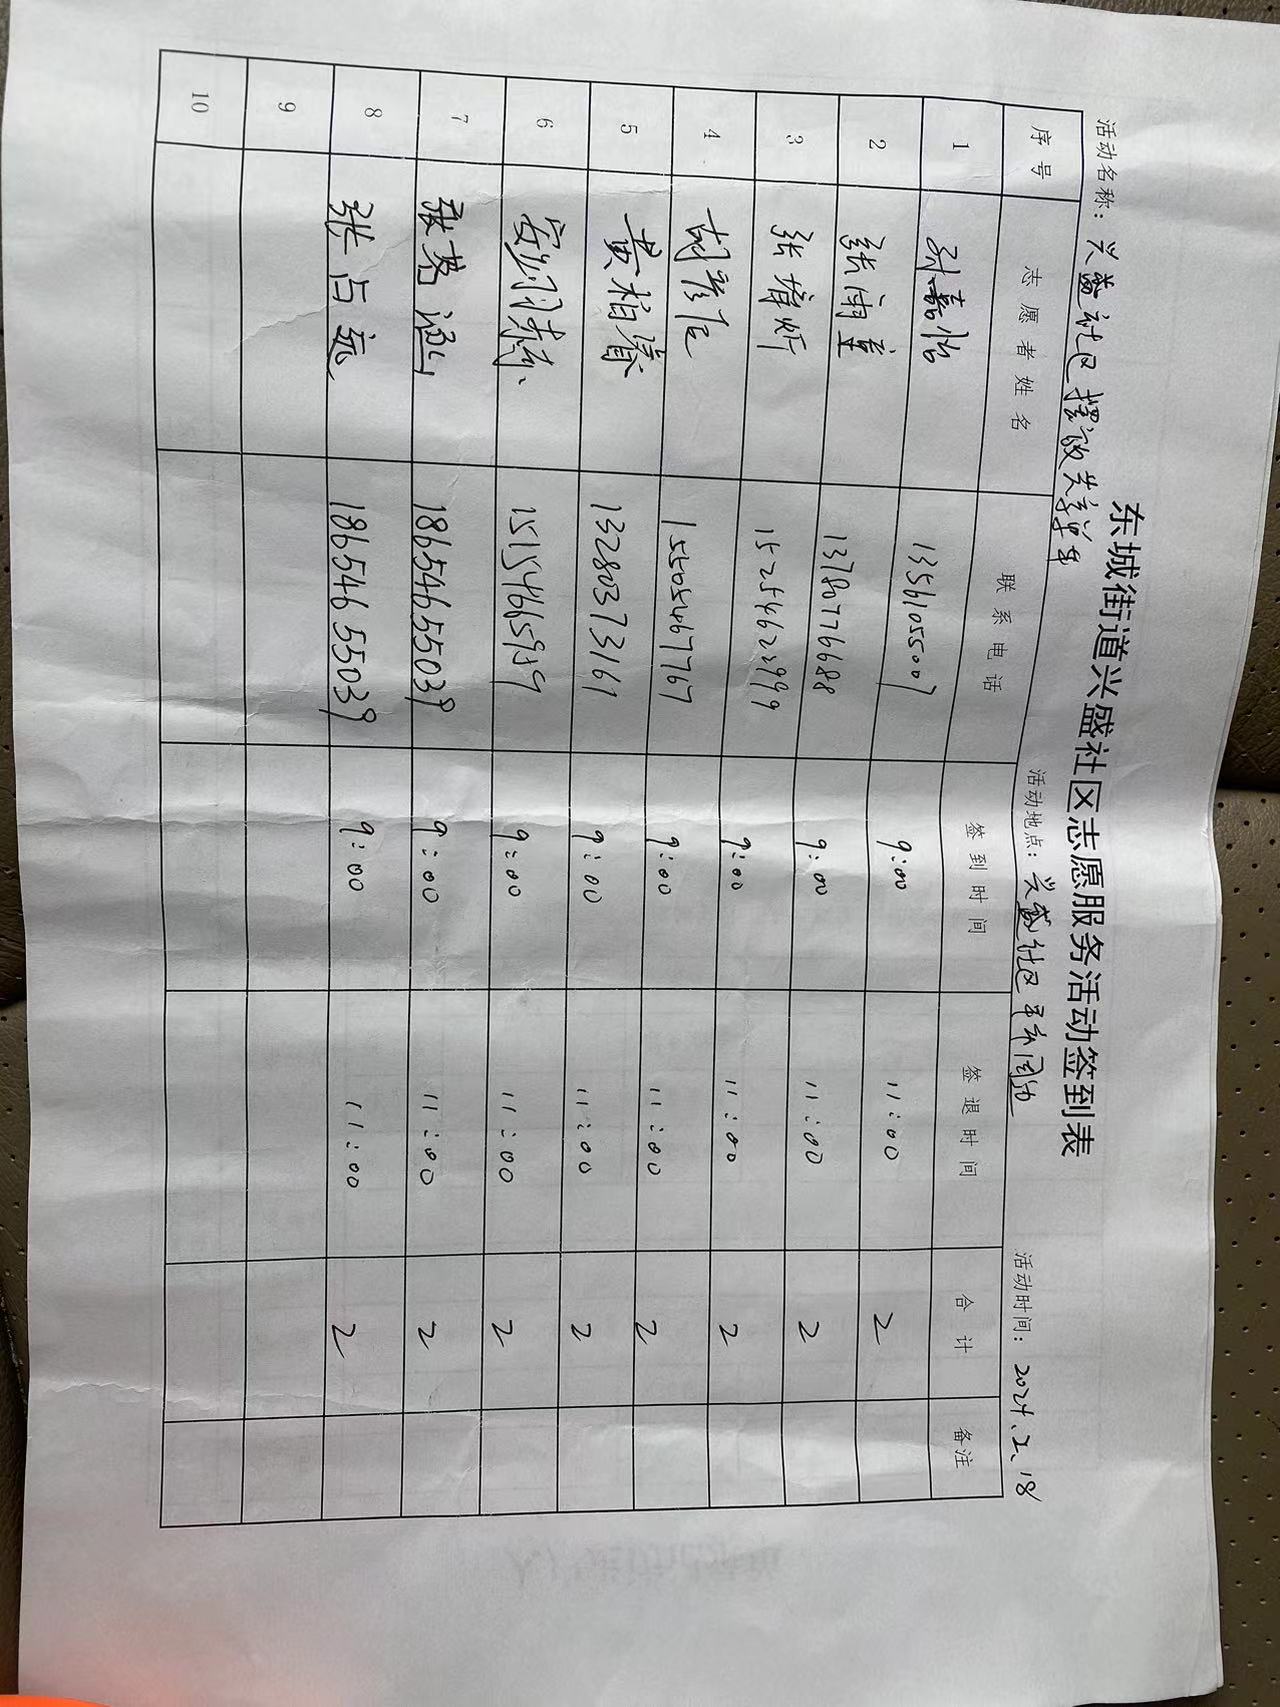 东城街道兴盛社区志愿服务活动签到表
活动名称：兴盛社区摆放共享单车 活动地点：兴盛社区平市周边 活动时间：2024.2.18
序号 志愿者姓名 联系电话 签到时间 签退时间 合计 备注
1 孙嘉怡 13561055007 9:00 11:00 2
2 张雨童 13780776688 9:00 11:00 2
3 张 15254622999 9:00 11:00 2
4 胡彦 15505467767 9:00 11:00 2
5 黄柏睿 13280373161 9:00 11:00 2
6 15154665959 9:00 11:00 2
7 张 18654655039 9:00 11:00 2
8 张占远 18654655039 9:00 11:00 2
9
10